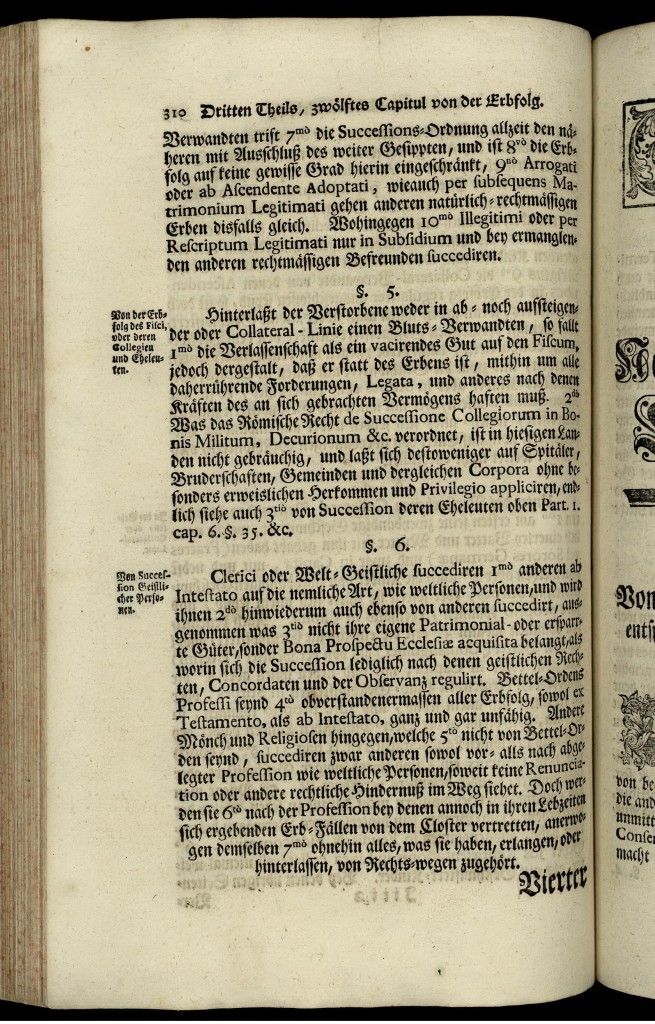 310 Dritten Theils, zwölftes Capitul von der Erbfolg.
Verwandten trift 7mò die Successions-Ordnung allzeit den nä-
heren mit Ausschluß des weiter Gesippten, und ist 8vò die Erb-
folg auf keine gewisse Grad hierin eingeschränkt, 9nò Arrogati
oder ab Ascendente Adoptati, wieauch per subsequens Ma-
trimonium Legitimati gehen anderen natürlich-rechtmässigen
Erben disfalls gleich. Wohingegen 10mò Illegitimi oder per
Rescriptum Legitimati nur in Subsidium und bey ermanglen-
den anderen rechtmässigen Befreunden succediren.
§. 5.
Von der Erb-
folg des Fisci,
oder deren
Collegien
und Eheleu-
ten.
Hinterlaßt der Verstorbene weder in ab- noch aufsteigen-
der oder Collateral-Linie einen Bluts-Verwandten, so fallt
1mò die Verlassenschaft als ein vacirendes Gut auf den Fiscum,
jedoch dergestalt, daß er statt des Erbens ist, mithin um alle
daherrührende Forderungen, Legata, und anderes nach denen
Kräften des an sich gebrachten Vermögens haften muß. 2dò
Was das Römische Recht de Successione Collegiorum in Bo-
nis Militum, Decurionum &c. verordnet, ist in hiesigen Lan-
den nicht gebräuchig, und laßt sich destoweniger auf Spitäler,
Bruderschaften, Gemeinden und dergleichen Corpora ohne be-
sonders erweislichen Herkommen und Privilegio appliciren, end-
lich siehe auch 3tiò von Succession deren Eheleuten oben Part. 1.
cap. 6. §. 35. &c.
§. 6.
Von Succes-
sion Geistli-
cher Perso-
nen.
Clerici oder Welt-Geistliche succediren 1mò anderen ab
Intestato auf die nemliche Art, wie weltliche Personen, und wird
ihnen 2dò hinwiederum auch ebenso von anderen succedirt, aus-
genommen was 3tiò nicht ihre eigene Patrimonial-oder erspar-
te Güter, sonder Bona Prospectu Ecclesiæ acquisita belangt, als
worin sich die Succession lediglich nach denen geistlichen Rech-
ten, Concordaten und der Observanz regulirt. Bettel-Ordens
Professi seynd 4tò obverstandenermassen aller Erbfolg, sowol ex
Testamento, als ab Intestato, ganz und gar unfähig. Andere
Mönch und Religiosen hingegen, welche 5tò nicht von Bettel-Or-
den seynd, succediren zwar anderen sowol vor- alls nach abge-
legter Profession wie weltliche Personen, soweit keine Renuncia-
tion oder andere rechtliche Hindernuß im Weg stehet. Doch wer-
den sie 6tò nach der Profession bey denen annoch in ihren Lebzeiten
sich ergebenden Erb-Fällen von dem Closter vertretten, anerwo-
gen demselben 7mò ohnehin alles, was sie haben, erlangen, oder
hinterlassen, von Rechts-wegen zugehört.
Vierter
Von
ents
von be
die and
unmitt
Conser
macht